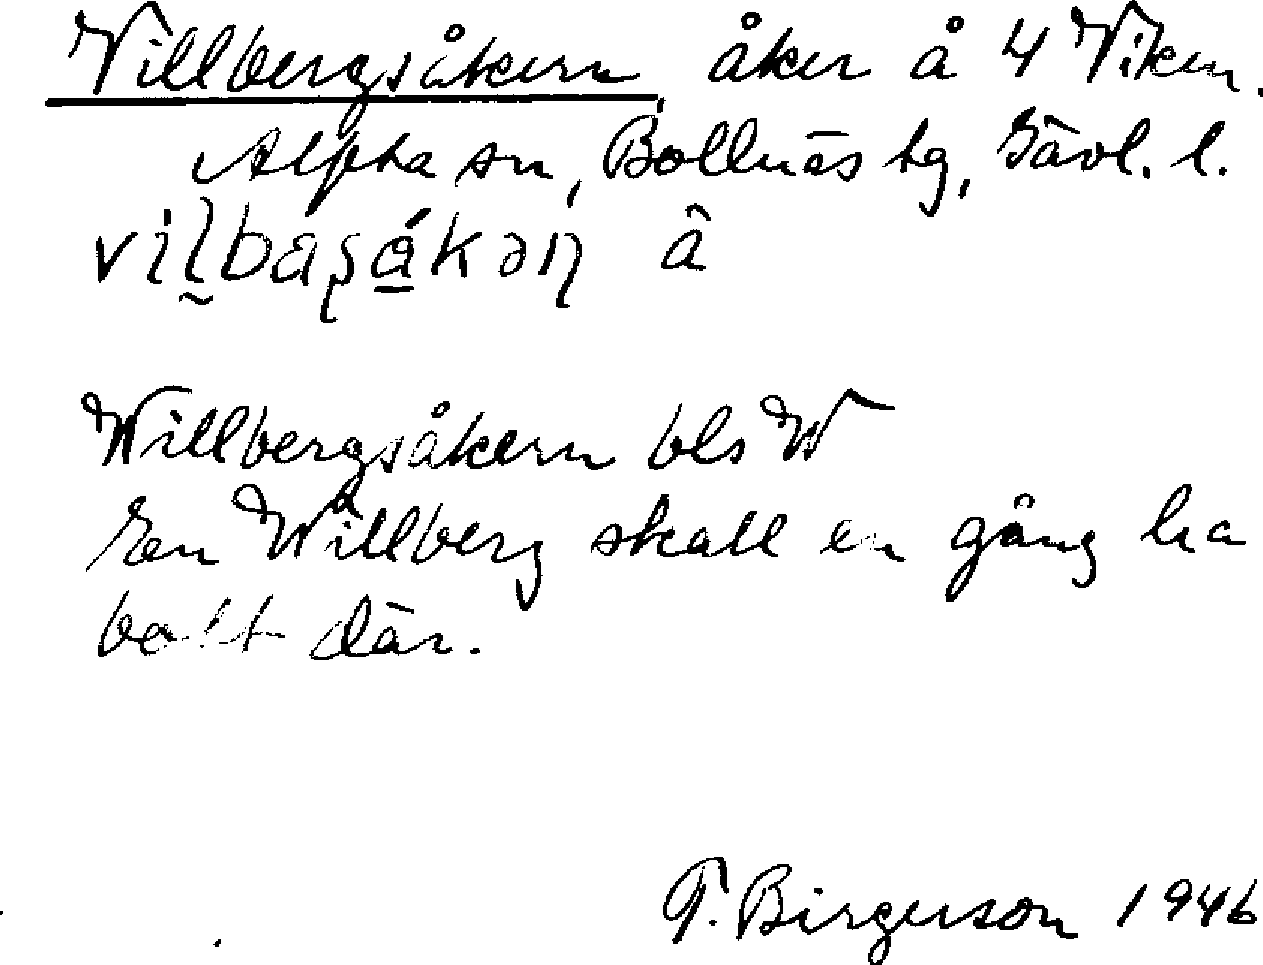 Villbergsåkern, åker å 4 Viken.
Alfta sn, Bollnäs tg, Gävl. l.
å
Willbergsåkern bls W
En Willberg skall en gång ha
bott där.
F. Birgerson 1946